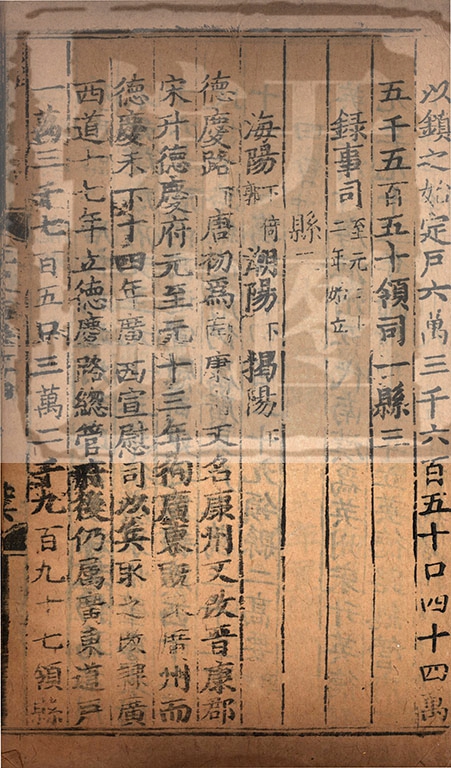 以鎮之始定戶六萬三千六百五十口四十四萬
五千五百五十領司一縣三
録事司至元二十二年始立
縣三
海陽下倚郭潮陽下揭陽下
德慶路下唐初爲南康州又名康州又改晉康郡
宋升德慶府元至元十三年徇廣東取廣州而
德慶未下十四年廣西宣慰司以兵取之改隷廣
西道十七年立德慶路總管府後仍屬廣東道戶
一萬三千七百五口三萬二千九百九十七領縣